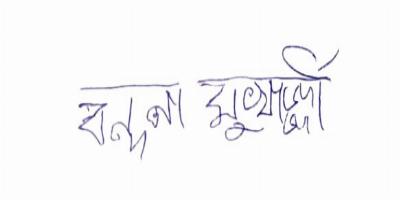 বন্দনা মুখার্জ্জী